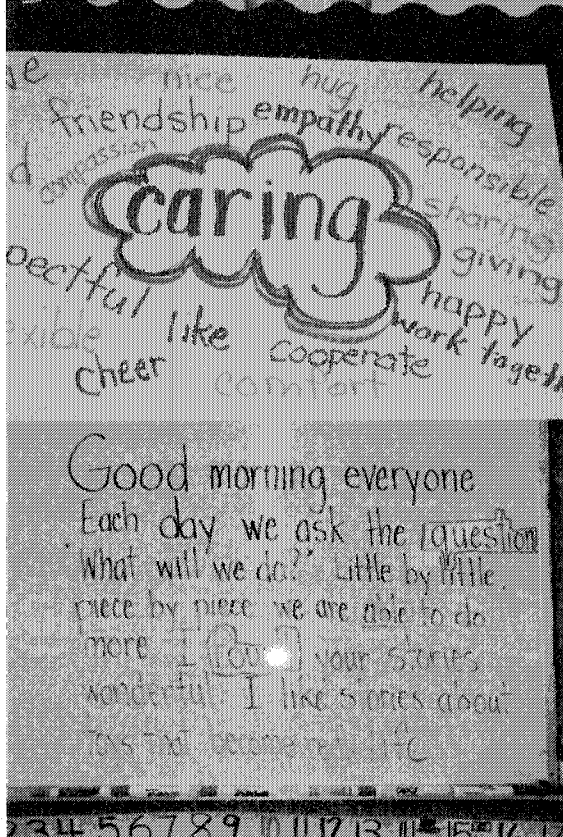 nice hug helping
friendship empathy responsible
compassion
caring
sharing
giving
pectful
happy
exible like
work togeth
cooperate
cheer
comfort
Good morning everyone
Each day we ask the question
"What will we do?" Little by little
piece by piece we are able to do
more I your stories
wonderful. I like stories about
toys that become real life
2 3 4 5 6 7 8 9 10 11 12 13 14 15 16